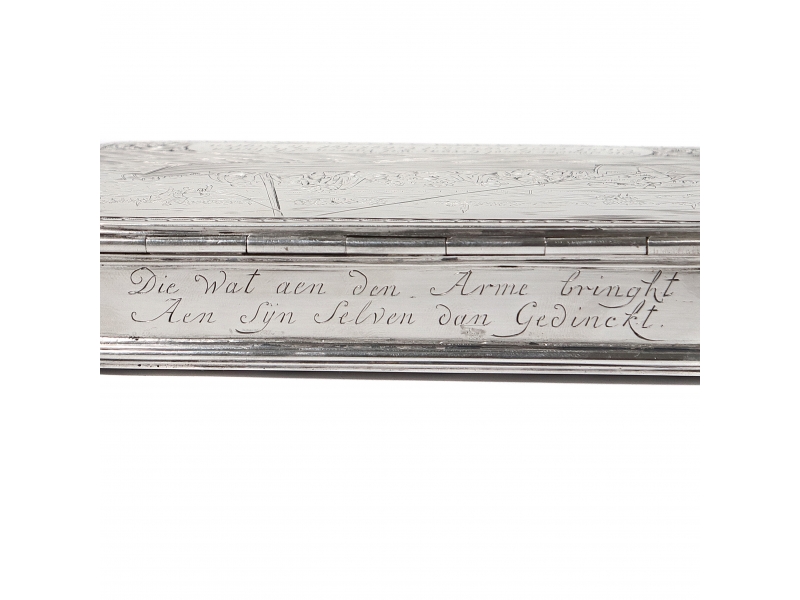 Die wat aen den Arme bringht
Aen Sÿn Selven dan Gedinckt.